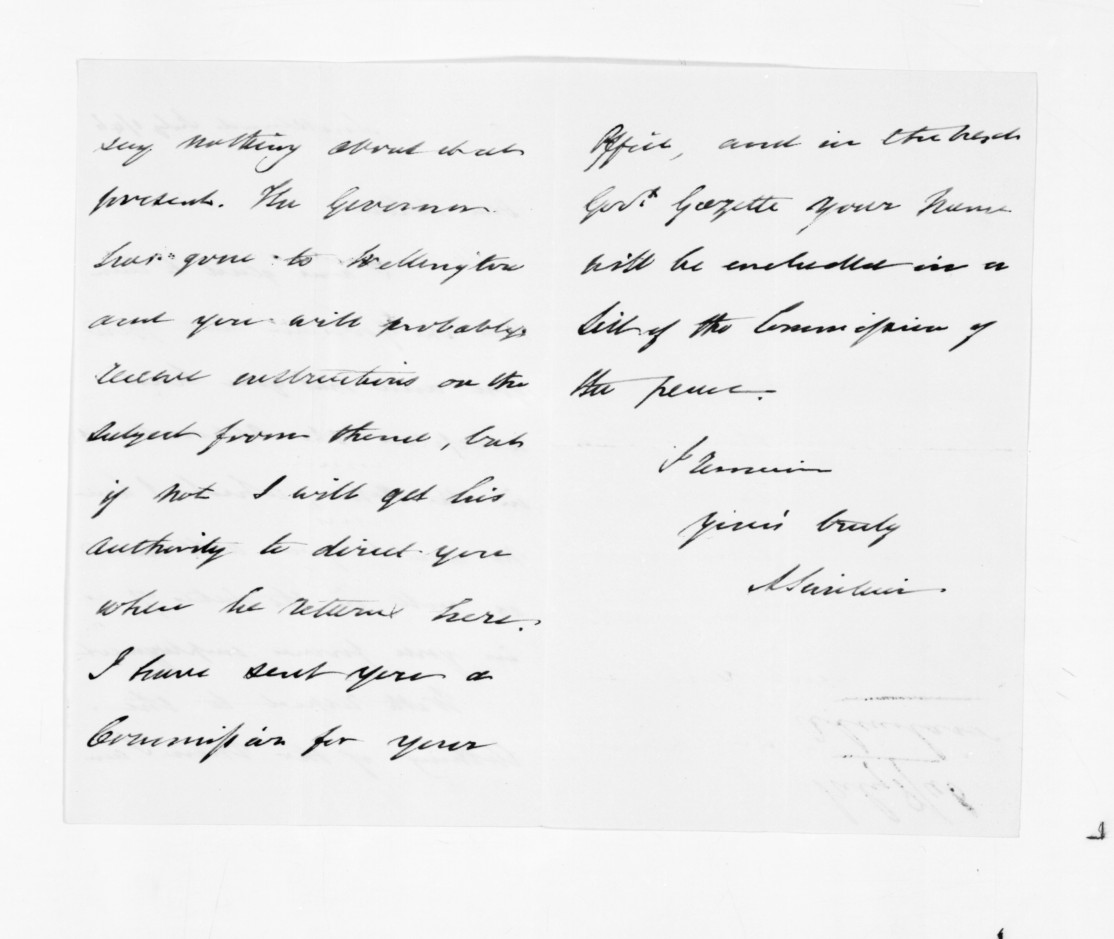 say nothing about it at
present. The Governor
has gone to Wellington
and you will probably
receive instructions on the
subject from thence, but
if not I will get his
authority to direct you
when he returns here.
I have sent you a
Commission for your
Office, and in the next
Govt. Gazette your name
will be included in a
list of the Commission of
the peace.
I remain
yours truly
A Sinclair.